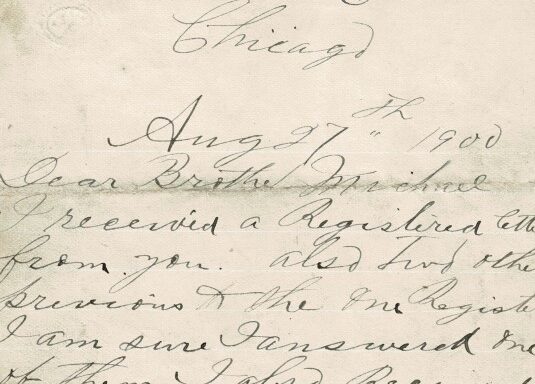 Chicago
Aug 27th 1900
Dear Brother Michael
I received a Registered lette
from you. also Two othe
previous to the One Registe
I am sure I answered One
of them I also